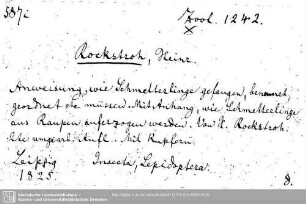 587i
Zool. 1242.
Rockstroh, Heinr.
Anweisung, wie Schmetterlinge gefangen, benannt,
geordnet die müssen. Mit Anhang, wie Schmetterlinge
aus Raupen aufgezogen werden. Von H. Rockstroh.
2te umgearb. Aufl. Mit Kupfern.
Leipzig Insecta, Lepidoptera.
1825. 8.
Sächsische Landesbibliothek -
Staats- und Universitätsbibliothek Dresden